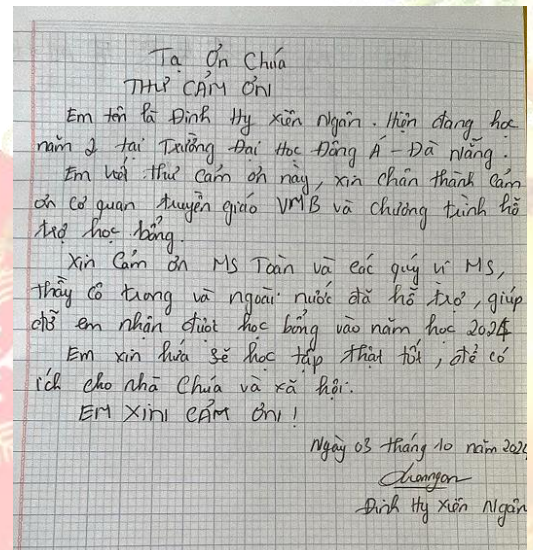 Tạ Ơn Chúa
THƯ CẢM ƠN
Em tên là Đinh Hy Xiên Ngân. Hiện đang học
năm 2 tại Trường Đại Học Đông Á - Đà Nẵng.
Em viết thư cảm ơn này, xin chân thành cảm
ơn cơ quan truyền giáo VMB và chương trình hỗ
trợ học bổng.
Xin Cảm ơn MS Toàn và các quý vị MS,
thầy cô trong và ngoài nước đã hỗ trợ, giúp
đỡ em nhận được học bổng vào năm học 2024
Em xin hứa sẽ học tập thật tốt, để có
ích cho nhà Chúa và xã hội.
EM XIN CẢM ƠN!
Ngày 03 tháng 10 năm 2024
Đinh Hy Xiên Ngân